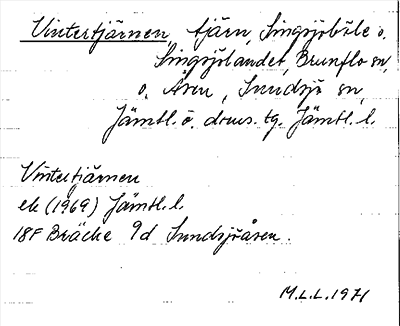 Vintertjärnen, tjärn, Singsjöböle o.
Singsjölandet, Brunflo sn,
o. Åsen, Sundsjö sn,
Jämtl. ö. doms. tg. Jämtl. l.
Vintertjärnen
ek (1969) Jämtl. l.
18F Bräcke 9d Sundsjöåsen.
M.L.L. 1971